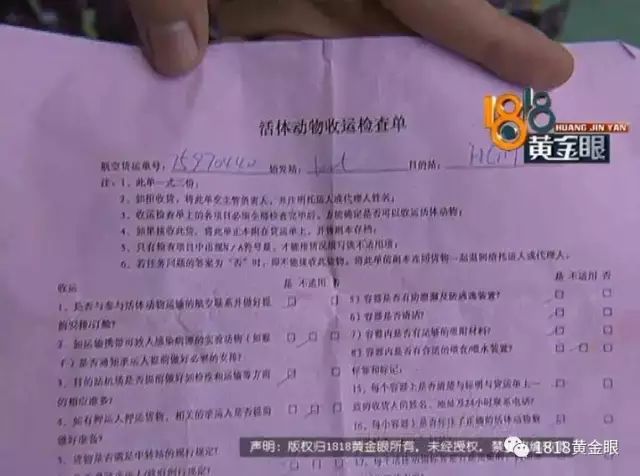 1818
HUANG JIN YAN
黄金眼
活体动物收运检查单
航空货运单号: 15970440 始发站: 目的站:
注: 1、此单一式二份;
2、如拒收货, 将此单交主管负责人, 并注明托运人或代理人姓名;
3、收运检查单上的各项目必须全部检查完毕后, 方能确定是否可以收运活体动物;
4、如果接收此货, 将此单正本附在货运单上, 并将副本存档;
5、只有检查项目中出现N/A符号是, 才能酌情填写该不适用项;
6、若任务问题的答案为“否”时, 即不能接收此货物, 将此单的副本连同货物一起退回给托运人或代理人。
收运 是 不适用 否 是 不适用 否
1、是否与参与活体动物运输的航空联系并做好提
前安排/订舱?
2、如运输携带可致人感染病源的实验动物(如猴
子)是否通知承运人提前做好必要的安排?
3、目的站机场是否提前做好如检疫和运输等方面
的相应准备?
4、如有押运人押运货物, 相关的承运人是否提前
做好准备?
5、货物是否满足中转站的现行规定?
5)容器是否有防泄漏及防逃逸装置?
6)容器是否清洁?
7)容器内是否有足够的吸附材料?
8)容器内是否有合适的喂食/喂水装置?
标签和标记:
15、每个容器上是否清楚与标明与货运单上一
致的收货人的姓名、地址及24小时联系电话?
16、每个容器上是否有注了正确的活体动物数
声明: 版权归1818黄金眼所有, 未经授权, 禁
1818黄金眼